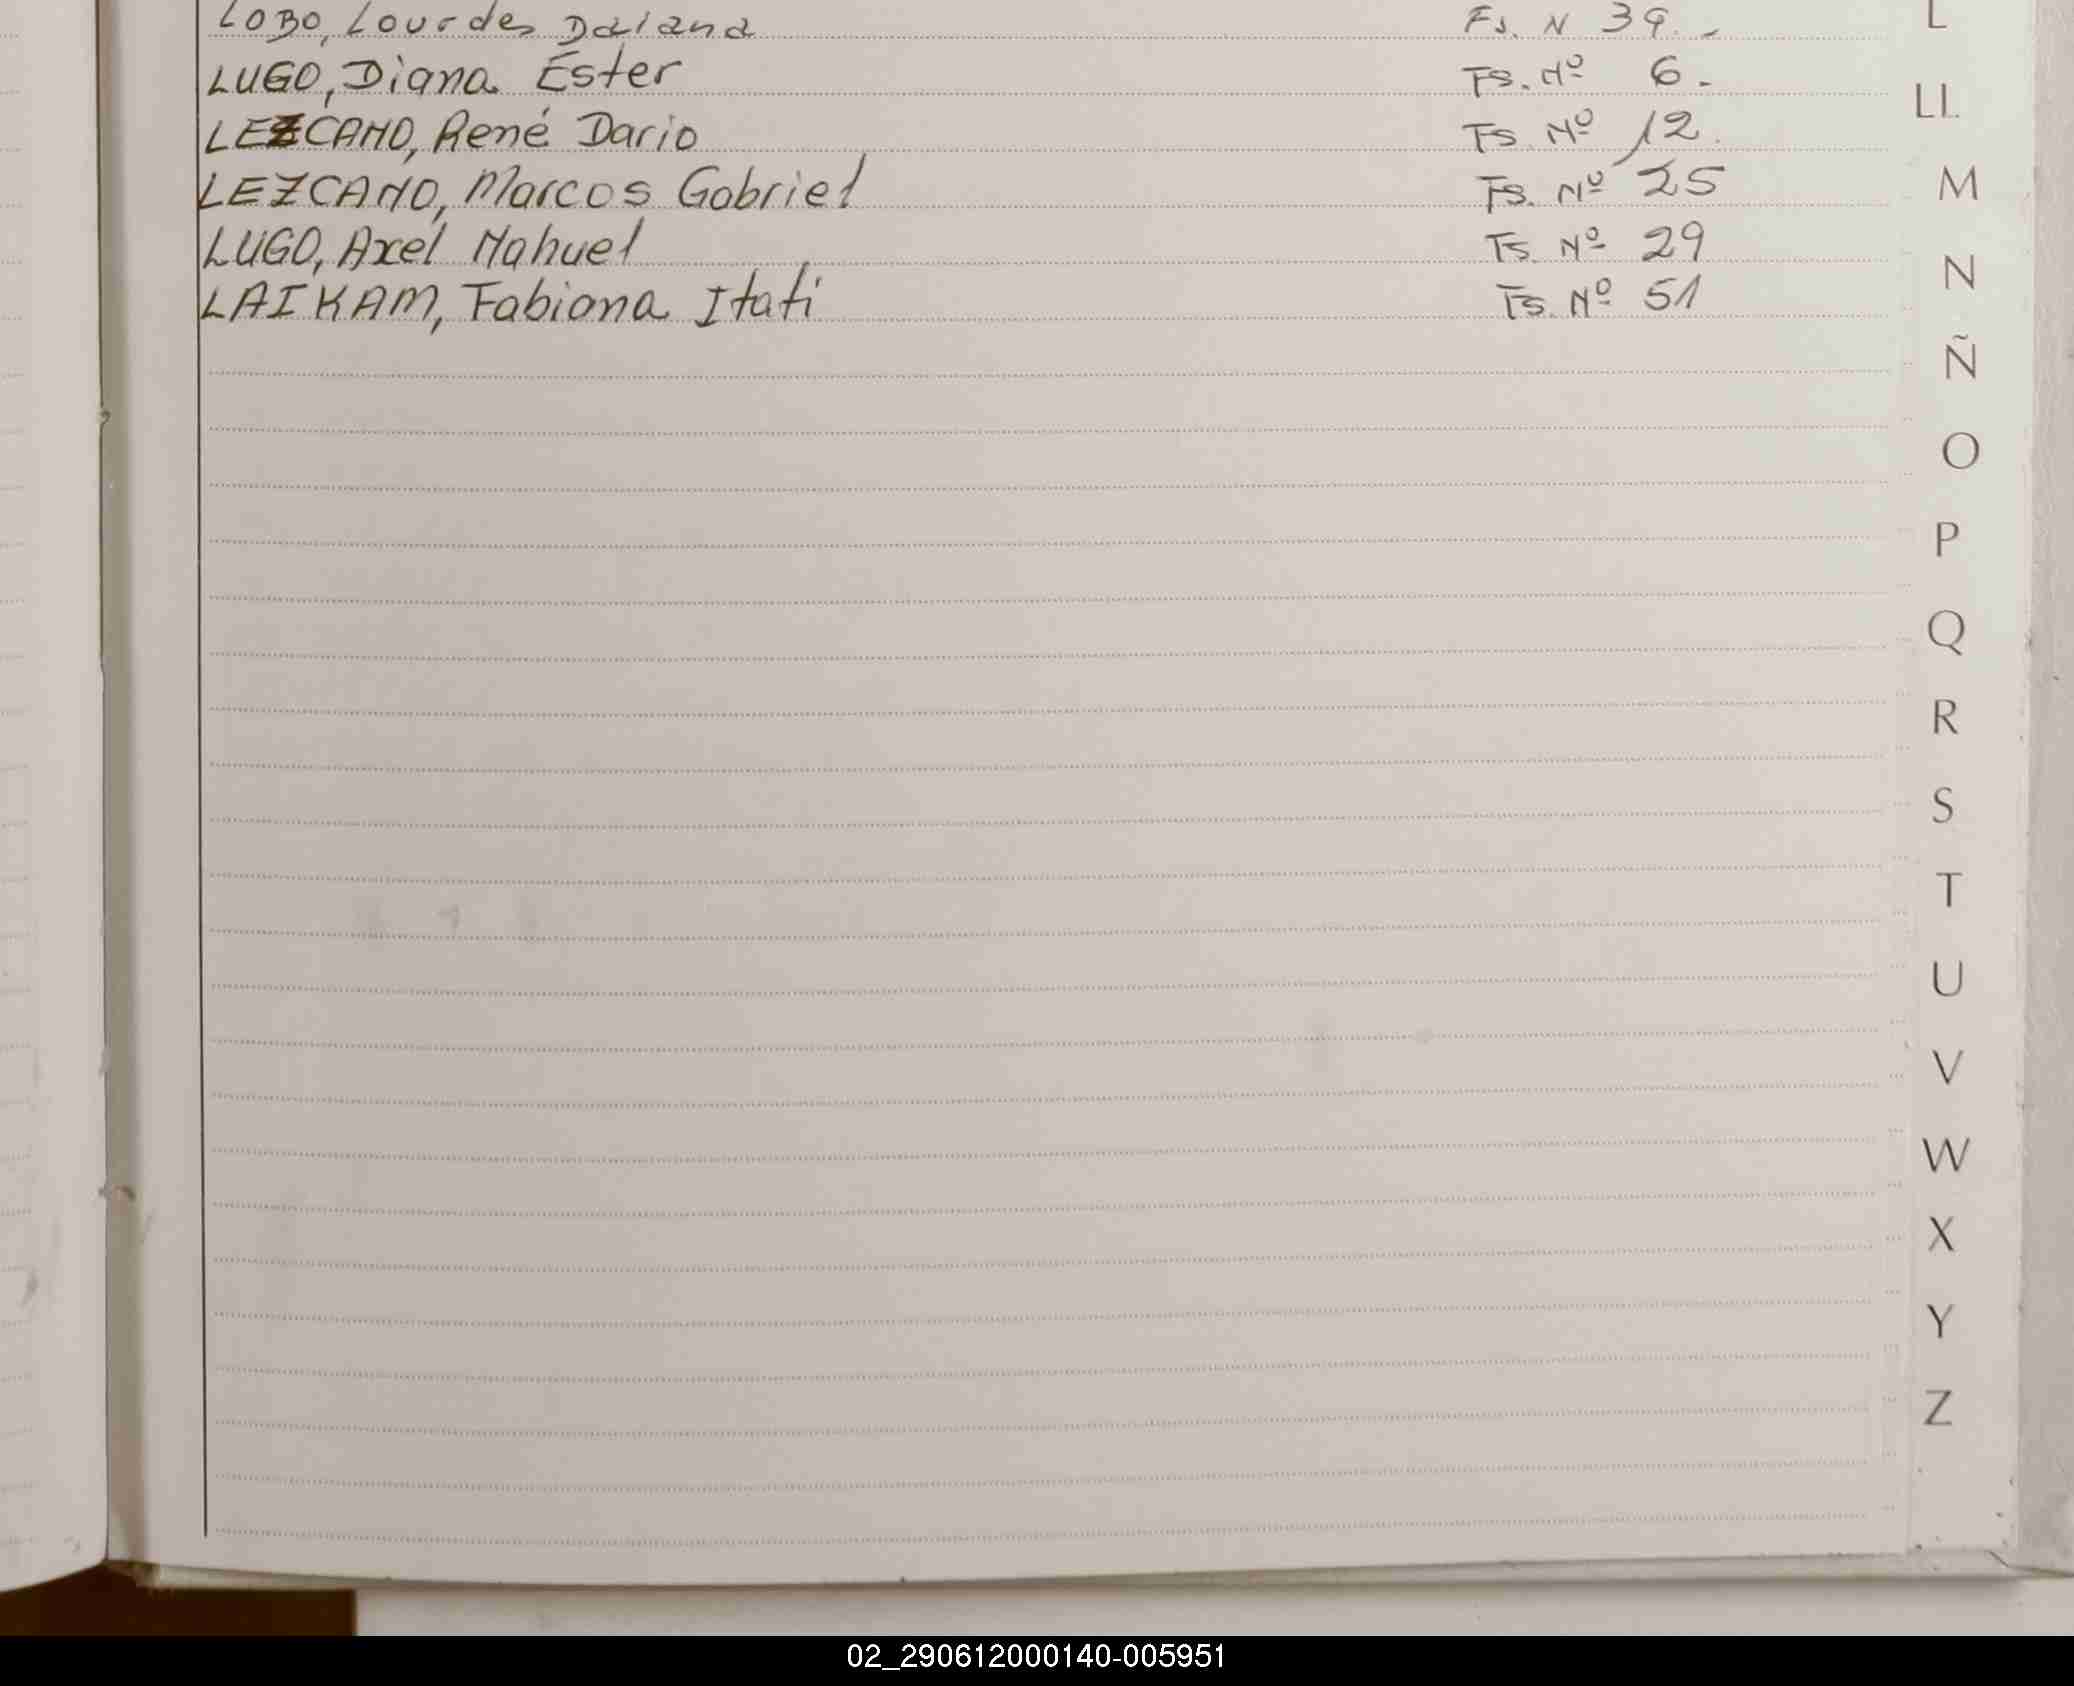 LOBO, Lourdes Daiana Fs. N 39.-
LUGO, Diana Ester Fs. Nº 6.-
LEZCANO, René Dario Fs. Nº 12.
LEZCANO, Marcos Gabriel Fs. Nº 25
LUGO, Axel Nahuel Fs. Nº 29
LAIKAM, Fabiana Itati Fs. Nº 51
L
LL
M
N
Ñ
O
P
Q
R
S
T
U
V
W
X
Y
Z
02_290612000140-005951